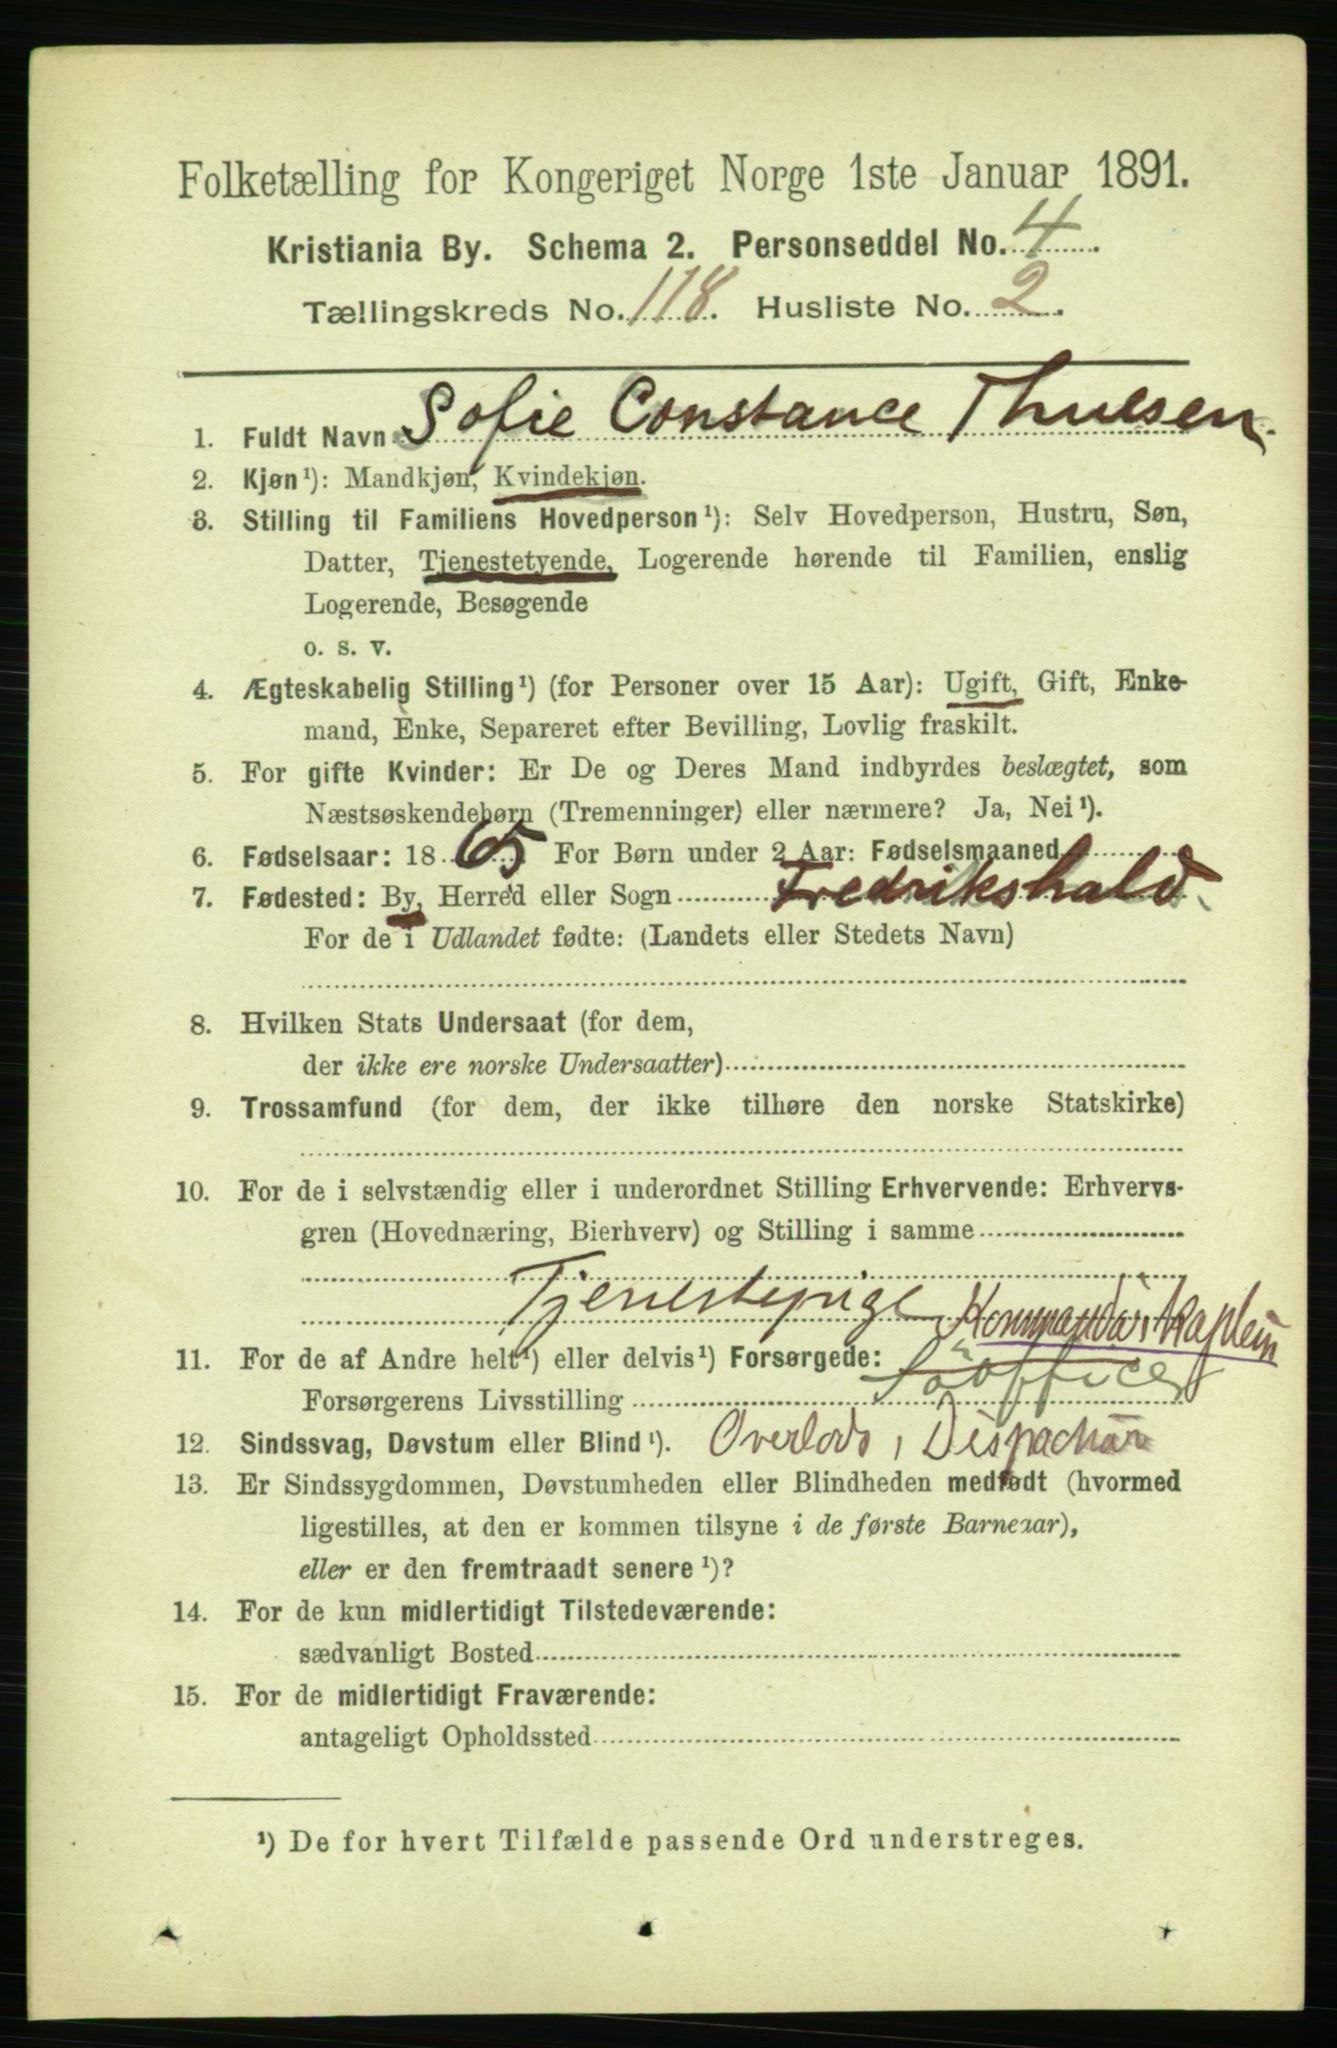 Folketælling for Kongeriget Norge 1ste Januar 1891.
Kristiania By. Schema 2. Personseddel No. 4.
Tællingskreds No. 118. Husliste No. 2.
1. Fuldt Navn Sofie Constance Thuesen.
2. Kjøn¹): Mandkjøn, Kvindekjøn.
3. Stilling til Familiens Hovedperson¹): Selv Hovedperson, Hustru, Søn,
Datter, Tjenestetyende, Logerende hørende til Familien, enslig
Logerende, Besøgende
o. s. v.
4. Ægteskabelig Stilling¹) (for Personer over 15 Aar): Ugift, Gift, Enke-
mand, Enke, Separeret efter Bevilling, Lovlig fraskilt.
5. For gifte Kvinder: Er De og Deres Mand indbyrdes beslægtet, som
Næstsøskendebørn (Tremenninger) eller nærmere? Ja, Nei¹).
6. Fødselsaar: 1865. For Børn under 2 Aar: Fødselsmaaned
7. Fødested: By, Herred eller Sogn Fredrikshald.
For de i Udlandet fødte: (Landets eller Stedets Navn)
8. Hvilken Stats Undersaat (for dem,
der ikke ere norske Undersaatter)
9. Trossamfund (for dem, der ikke tilhøre den norske Statskirke)
10. For de i selvstændig eller i underordnet Stilling Erhvervende: Erhvervs-
gren (Hovednæring, Bierhverv) og Stilling i samme
Tjenestepige Kommandørkaptein
11. For de af Andre helt¹) eller delvis¹) Forsørgede:
Forsørgerens Livsstilling Söofficer
12. Sindssvag, Døvstum eller Blind¹). Overlods, Dispachør
13. Er Sindssygdommen, Døvstumheden eller Blindheden medfødt (hvormed
ligestilles, at den er kommen tilsyne i de første Barneaar),
eller er den fremtraadt senere¹)?
14. For de kun midlertidigt Tilstedeværende:
sædvanligt Bosted
15. For de midlertidigt Fraværende:
antageligt Opholdssted
¹) De for hvert Tilfælde passende Ord understreges.